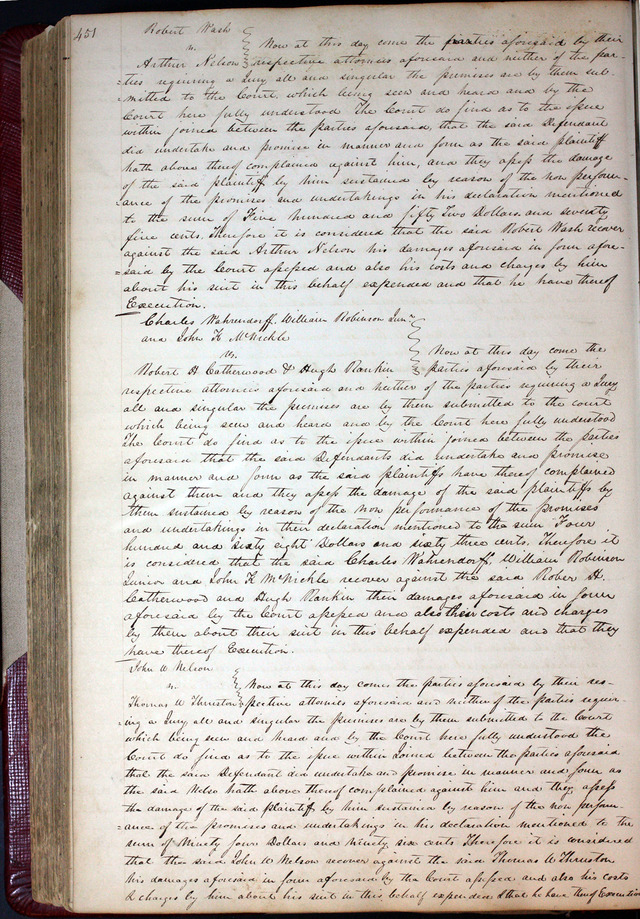 451
Robert Wash
vs.
Now at this day come the parties aforesaid by their
Arthur Nelson respective attornies aforesaid and neither of the par-
=ties requiring a Jury all and singular the premises are by them sub.
mitted to the Court, which being seen and heard and by the
Court here fully understood The Court do find as to the issue
within joined between the parties aforesaid, that the said Defendant
did undertake and promise in manner and form as the said plaintiff
hath above thereof complained against him, and they assess the damage
of the said plaintiff by him sustained by reason of the non perform-
ance of the promises and undertakings in his declaration mentioned
to the sum of Five hundred and fifty Two Dollars, and seventy
five cents. Therefore it is considered that the said Robert Wash recover
against the said Arthur Nelson his damages aforesaid in form afore-
=said by the Court assessed and also his costs and charges by him
about his suit in this behalf expended and that he have thereof
Execution.
Charles Wahrendorff, William Robinson Junr
and John F. McNickle
vs.
Now at this day come the
Robert H Catherwood & Hugh Rankin parties aforesaid by their
respective attornies aforesaid and neither of the parties requiring a Jury
all and singular the premises are by them submitted to the court
which being seen and heard and by the Court here fully understood
The Court do find as to the issue within joined between the parties
aforesaid that the said Defendants did undertake and promise
in manner and form as the said plaintiffs have thereof complained
against them and they assess the damage of the said plaintiffs by
them sustained by reason of the non performance of the promises
and undertakings in their declaration mentioned to the sum Four
hundred and sixty eight Dollars and sixty three cents. Therefore it
is considered that the said Charles Wahrendorff, William Robinson
Junior and John F McNickle recover against the said Rober H.
Catherwood and Hugh Rankin their damages aforesaid in form
aforesaid by the Court assessed and also their costs and charges
by them about their suit in this behalf expended and that they
have thereof Execution.
John W Nelson
vs.
Now at this day comes the parties aforesaid by their res-
Thomas W Thruston pective attornies aforesaid and neither of the parties requir-
=ing a Jury all and singular the premises are by them submitted to the Court
which being seen and heard and by the Court here fully understood the
Court do find as to the issue within Joined between the parties aforesaid
that the said Defendant did undertake and promise in manner and form as
the said Nelso hath above thereof complained against him and they assess
the damage of the said plaintiff by him sustained by reason of the non perform-
=ance of the promises and undertakings in his declaration mentioned to the
sum of Ninety four Dollars and Ninety six cents Therefore it is considered
that the said John W Nelson recover against the said Thomas W Thruston
his damages aforesaid in form aforesaid by the Court assessed and also his costs
& charges by him about his suit in this behalf expended & that he have thereof Execution